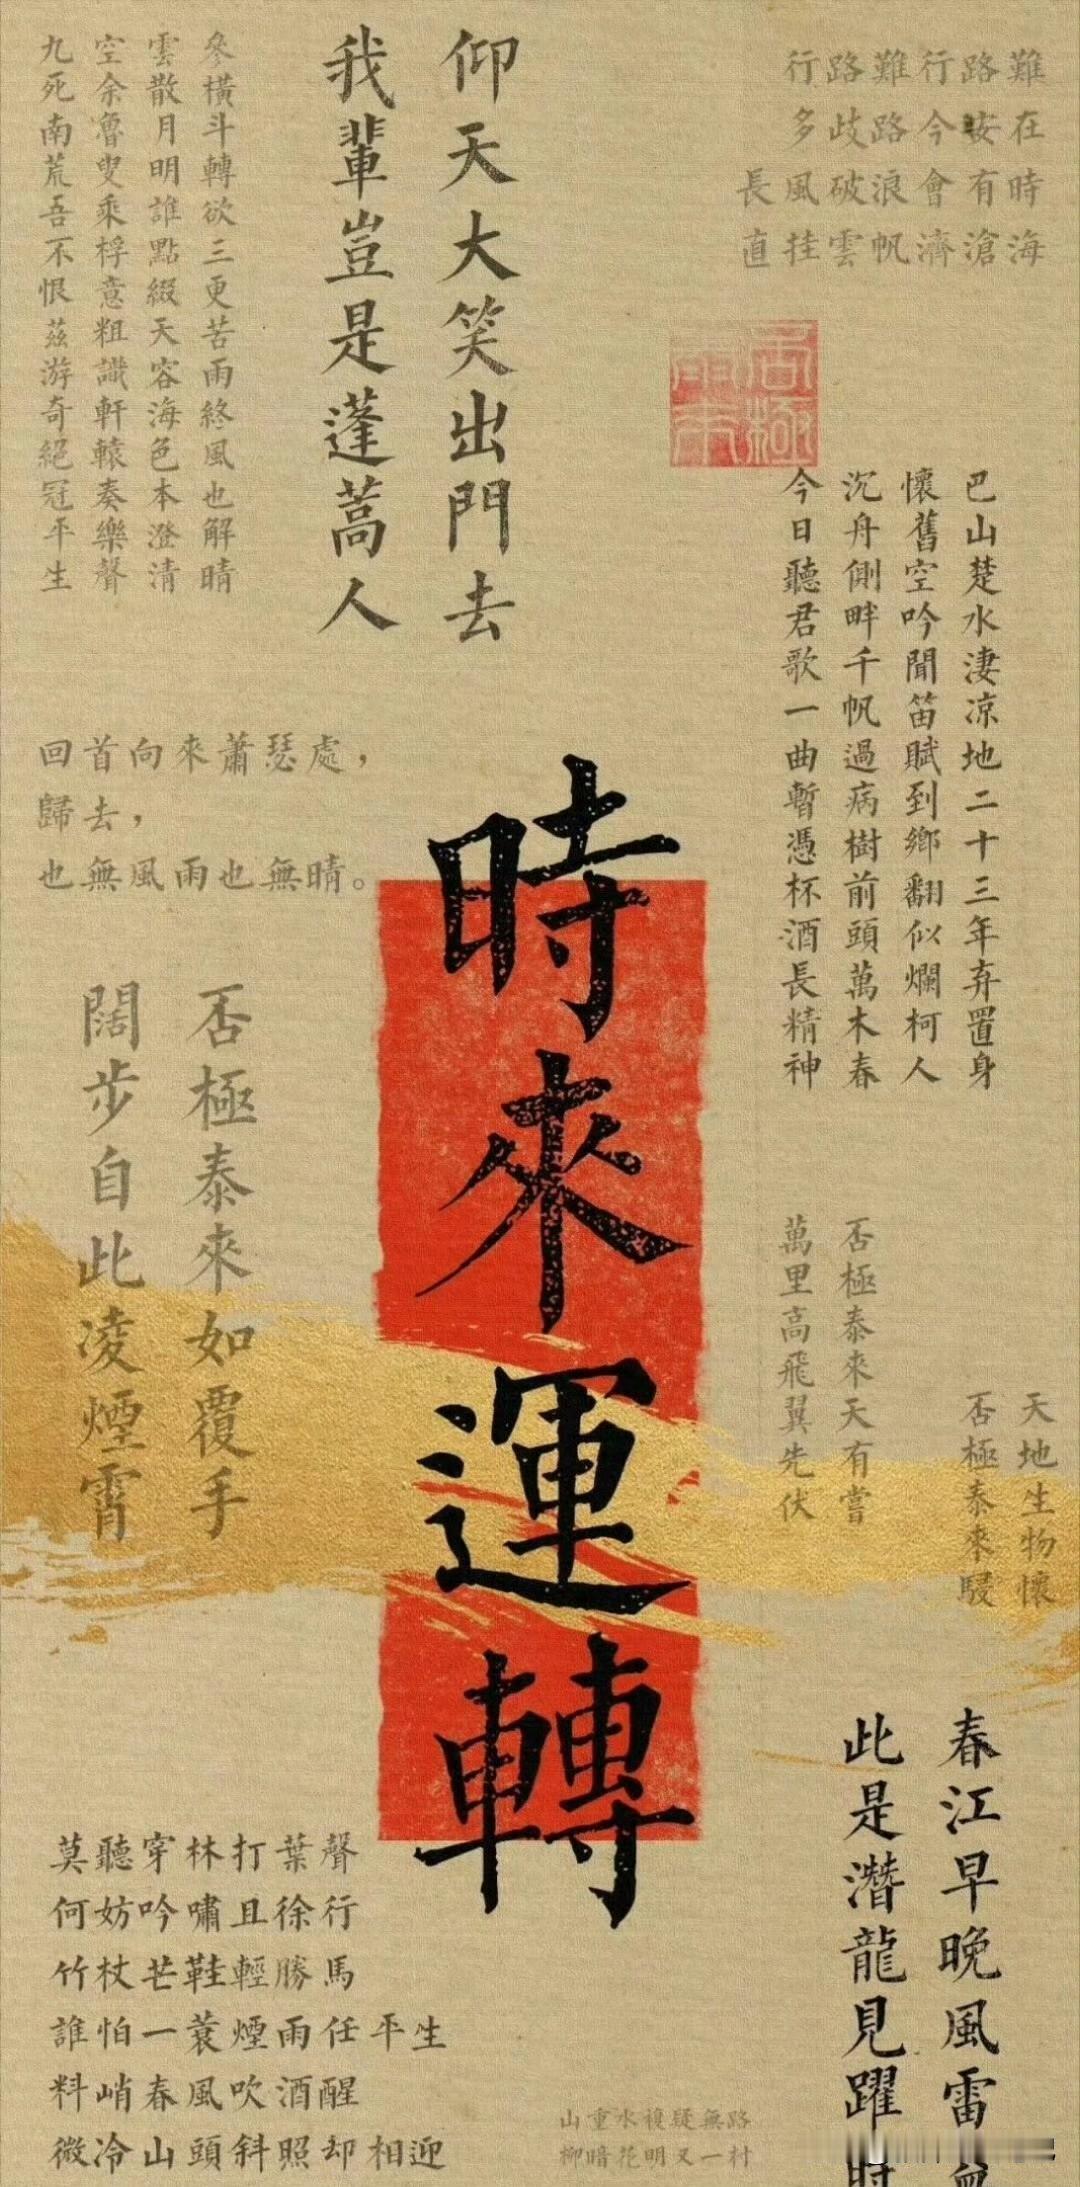 行路難行路難
多歧路今安在
長風破浪會有時
直挂雲帆濟滄海
否極泰來
巴山楚水淒凉地二十三年弃置身
懷舊空吟聞笛賦到鄉翻似爛柯人
沉舟側畔千帆過病樹前頭萬木春
今日聽君歌一曲暫憑杯酒長精神
仰天大笑出門去
我輩豈是蓬蒿人
參橫斗轉欲三更苦雨終風也解晴
雲散月明誰點綴天容海色本澄清
空余魯叟乘桴意粗識軒轅奏樂聲
九死南荒吾不恨茲游奇絕冠平生
回首向來蕭瑟處，
歸去，
也無風雨也無晴。
時來運轉
否極泰來如覆手
闊步自此凌煙霄
否極泰來天有嘗
萬里高飛翼先伏
天地生物懷
否極泰來駸
春江早晚風雷
此是潛龍見躍時
莫聽穿林打葉聲
何妨吟嘯且徐行
竹杖芒鞋輕勝馬
誰怕一蓑煙雨任平生
料峭春風吹酒醒
微冷山頭斜照却相迎
山重水複疑無路
柳暗花明又一村